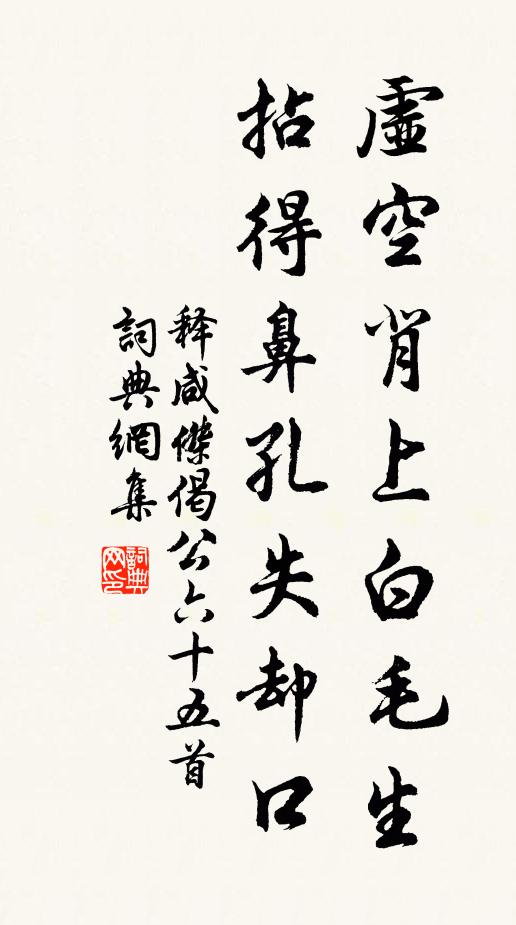 虛空背上白毛生
拈得鼻孔失却口
释咸傑偈公六十五首
詞典網集
詞典网印